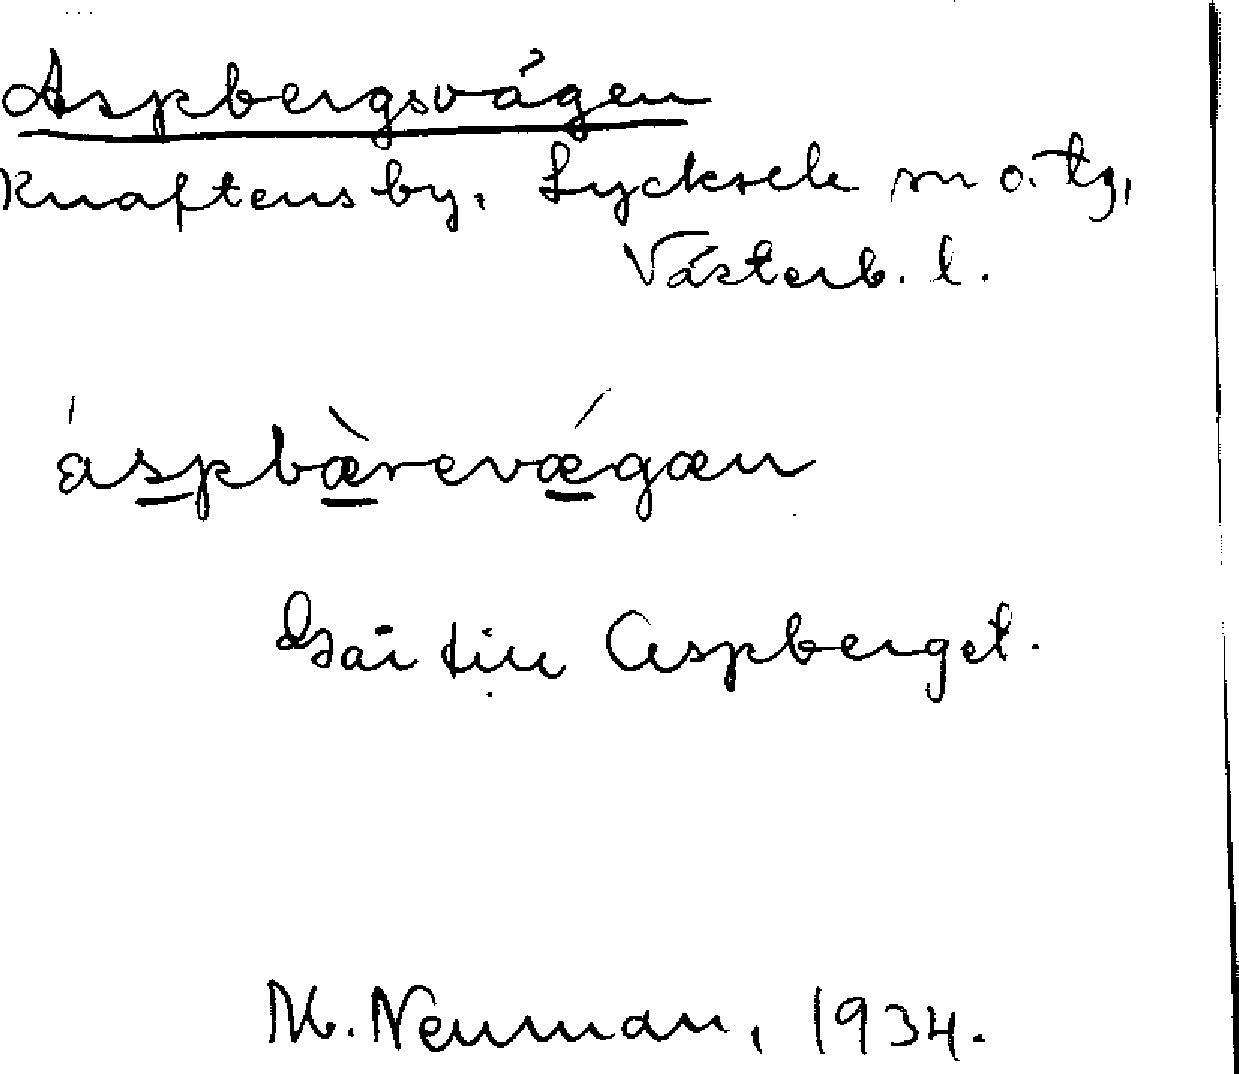 Aspbergsvägen
Knaftens by, Lycksele sn o. tg,
Västerb. l.
áspbæ̀revǽgæn
Går till Aspberget.
M. Neuman, 1934.